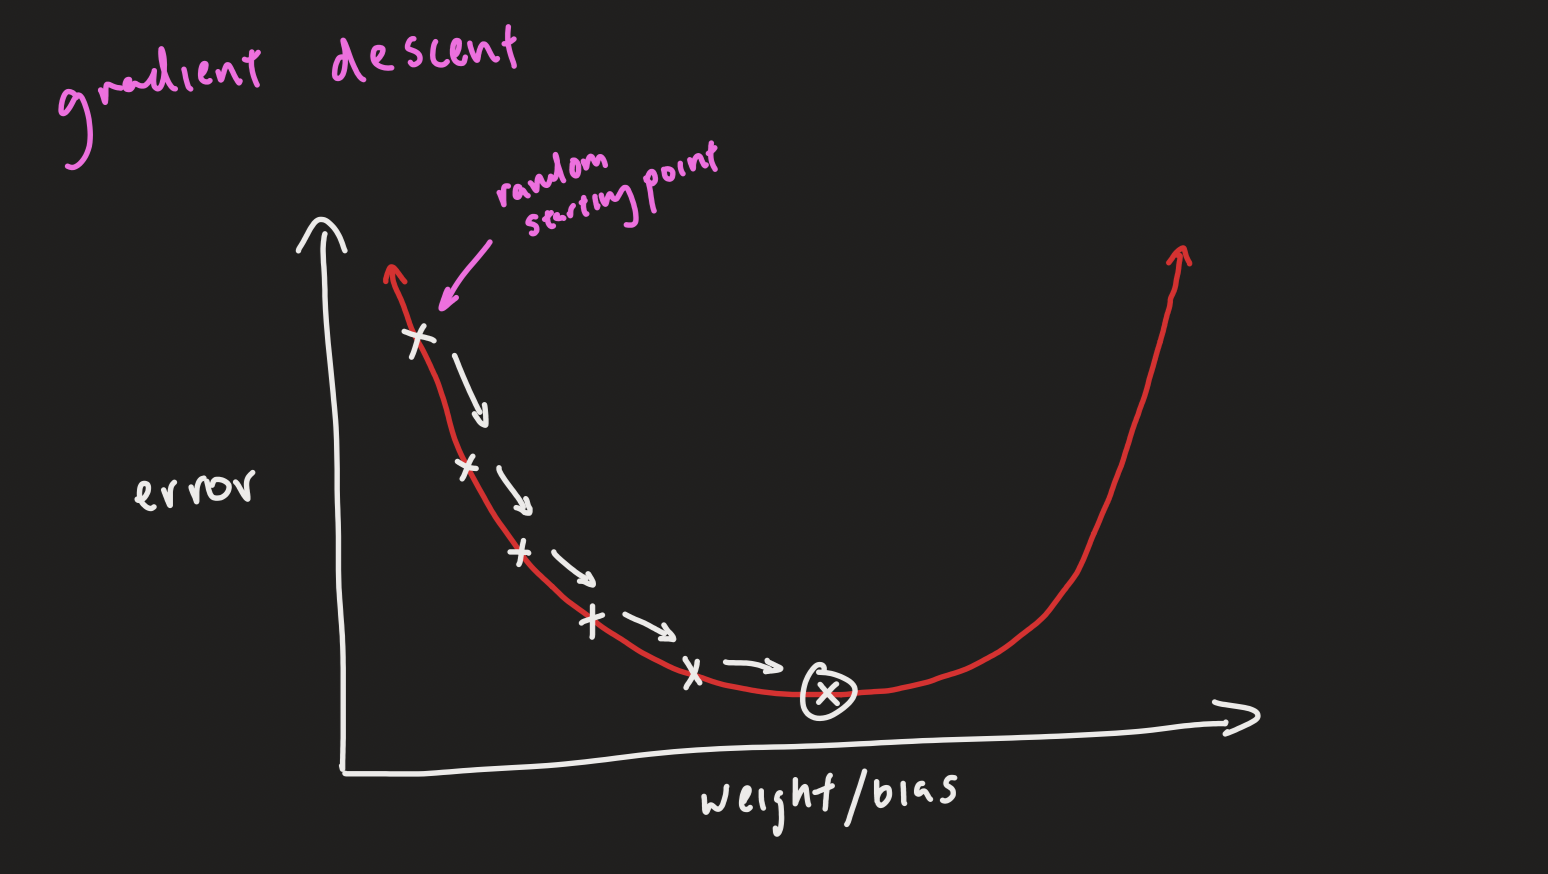 gradient descent
random
starting point
error
weight/bias